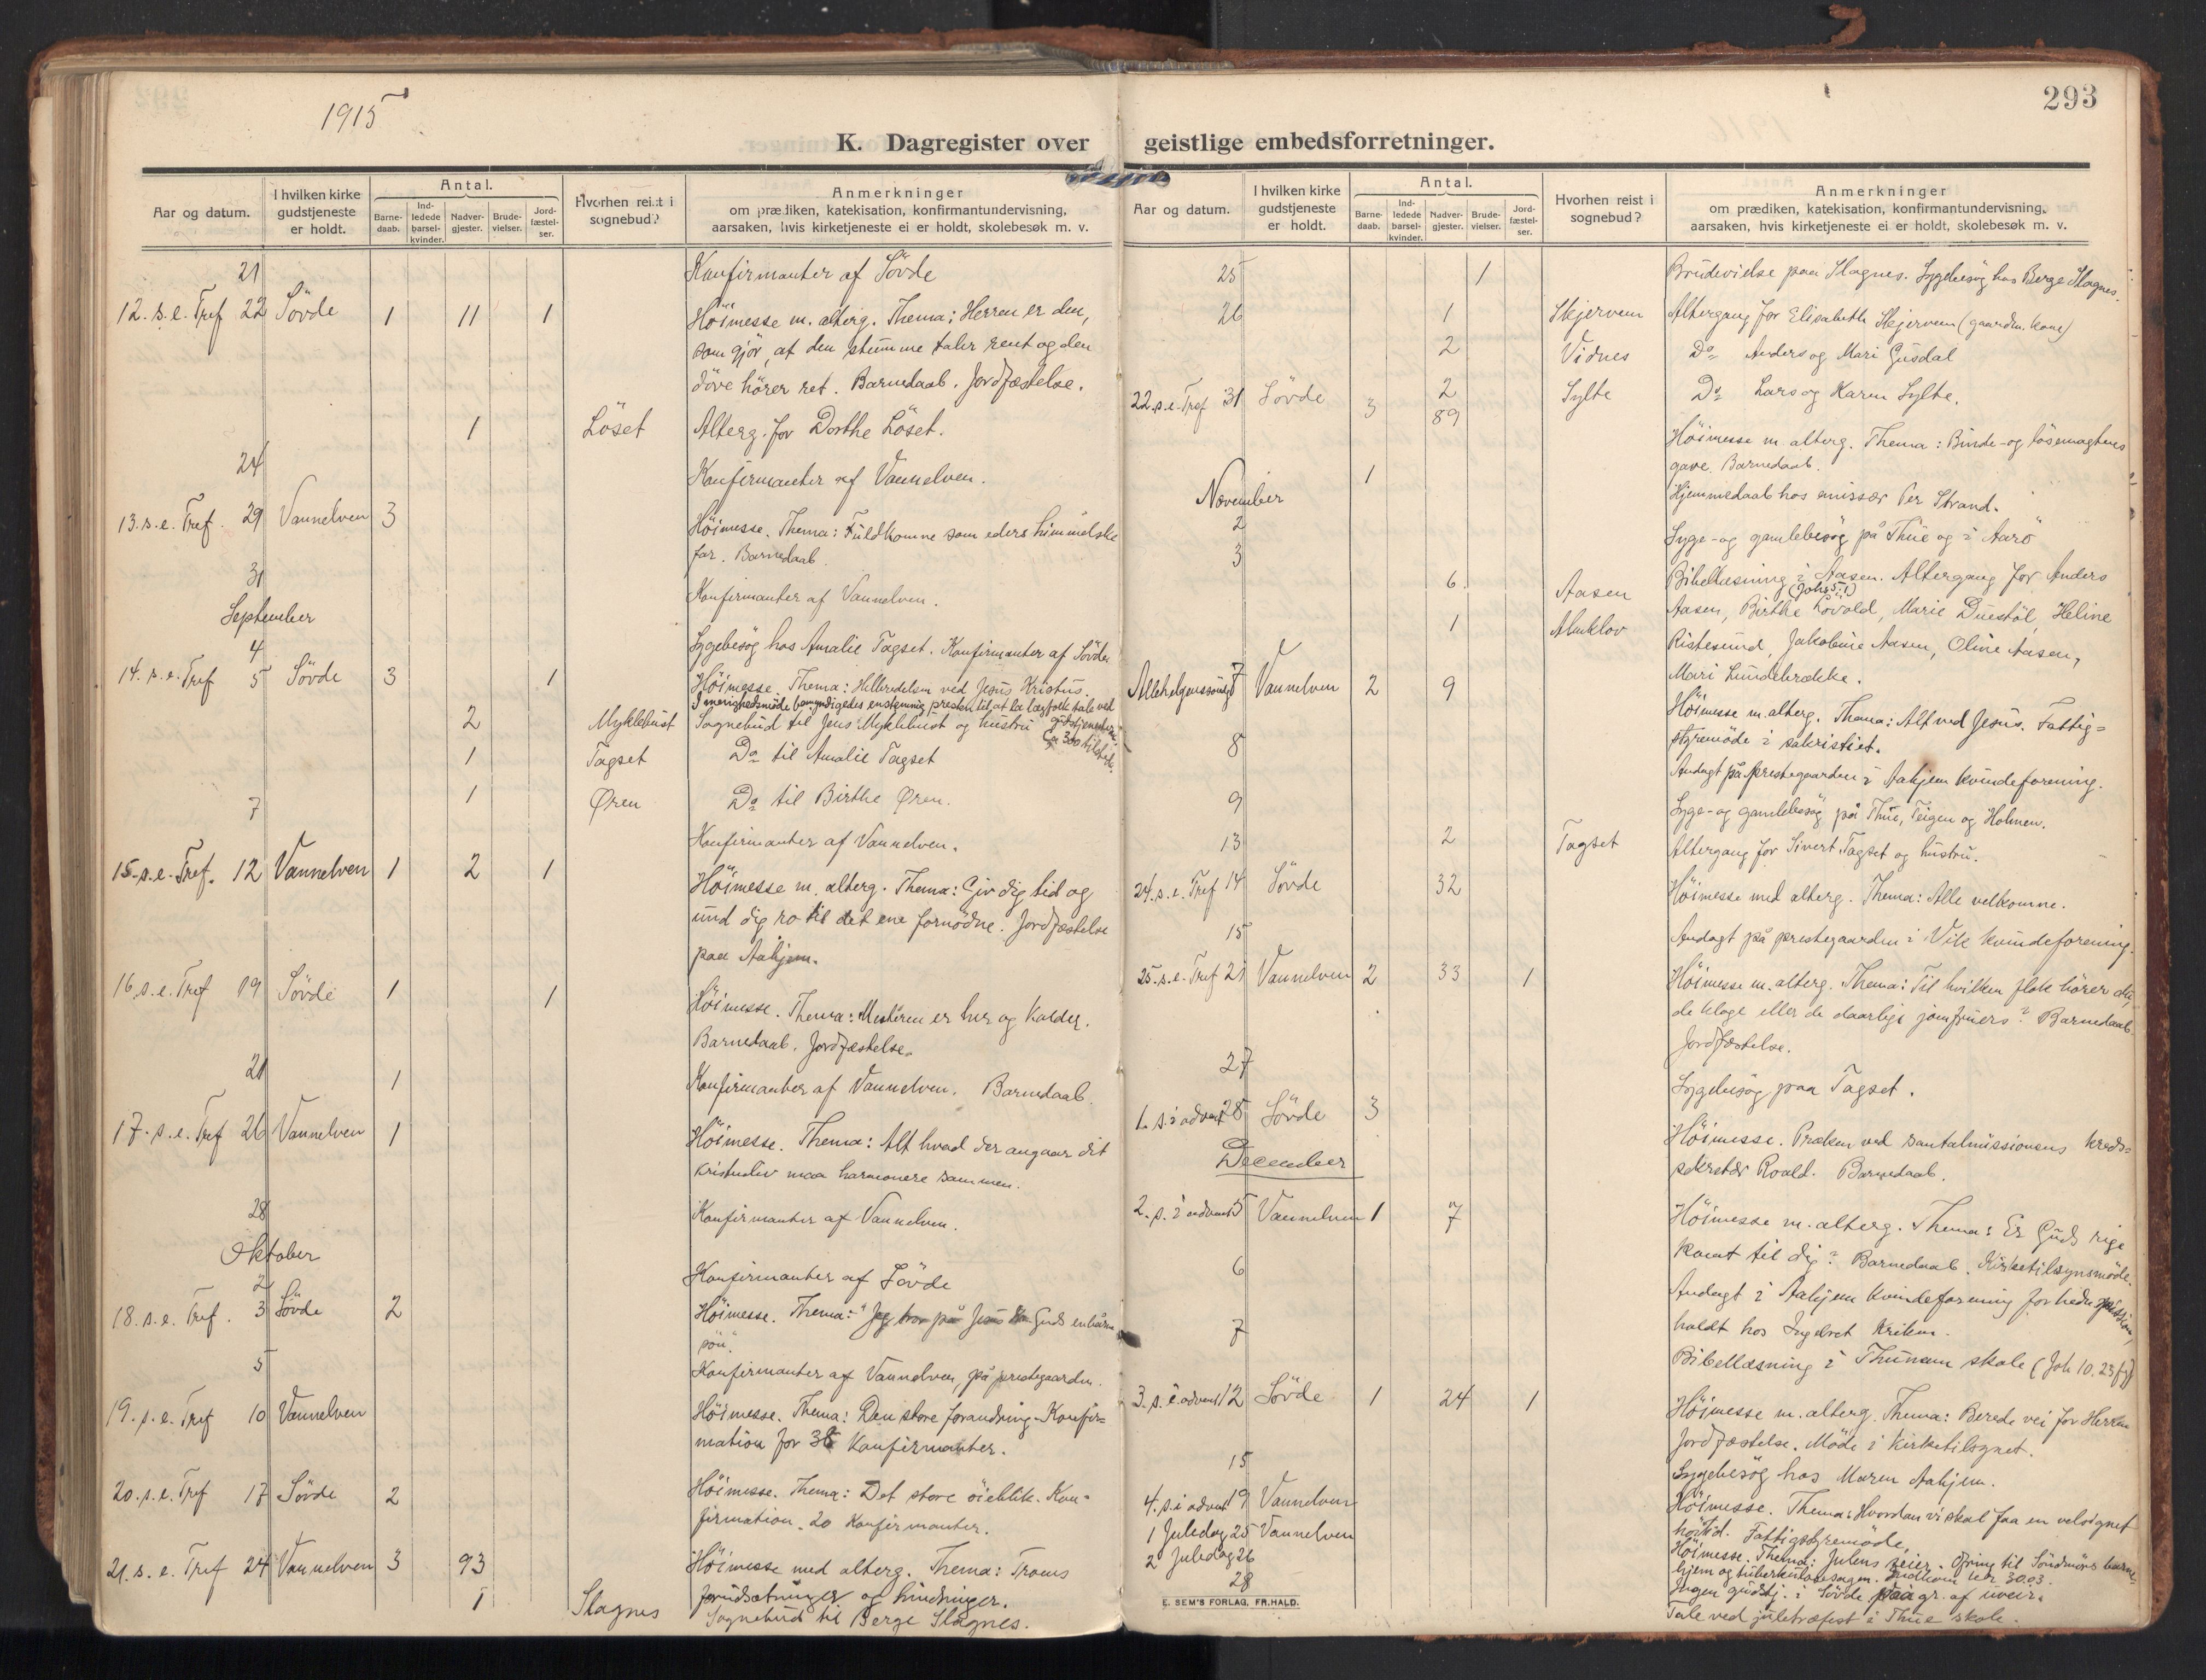 1915
293
K. Dagregister over geistlige embedsforretninger.
Aar og datum.
I hvilken kirke gudstjeneste er holdt.
Antal.
Barne-daab.
Ind-ledede barsel-kvinder.
Nadver-gjester.
Brude-vielser.
Jord-fæstel-ser.
Hvorhen reist i sognebud?
Anmerkninger
om prædiken, katekisation, konfirmantundervisning,
aarsaken, hvis kirketjeneste ei er holdt, skolebesøk m. v.
21 Konfirmanter af Sövde
12. s. e. Tref 22 Sövde 1 11 1 Höimesse m. alterg. Thema: Herren er den,
som gjör, at den stumme taler rent og den
döve hörer ret. Barnedaab. Jordfæstelse.
1 Löset Alterg. for Dorthe Löset.
24 Konfirmanter af Vannelven.
13. s. e. Tref. 29 Vannelven 3 Höimesse. Thema: Fuldkomne som eders himmelske
far. Barnedaab.
31 Konfirmanter af Vannelven.
September
4 Sygebesög hos Amalie Tagset. Konfirmanter af Sövde
14. s. e. Tref 5 Sövde 3 1 Höimesse. Thema: Helbredelsen ved Jesus Kristus.
I menighedsmöde bemyndigedes enstemmig presten til at la lægfolk tale ved gudstjenesten. Ca 300 tilstede.
2 Myklebust Sognebud til Jens Myklebust og hustru
1 Tagset Do til Amalie Tagset
1 Øren Do til Birthe Øren.
7 Konfirmanter af Vannelven.
15. s. e. Tref. 12 Vannelven 1 2 1 Höimesse m. alterg. Thema: Giv dig tid og
und dig ro til det ene fornödne. Jordfæstelse
paa Aahjem.
16. s. e. Tref 19 Sövde 1 1 Höimesse. Thema: Mesteren er her og kalder.
Barnedaab. Jordfæstelse.
21 1 Konfirmanter af Vannelven. Barnedaab.
17. s. e. Tref 26 Vannelven 1 Höimesse. Thema: Alt hvad der angaar dit
kristenliv maa harmonere sammen.
28 Konfirmanter af Vannelven.
Oktober
2 Konfirmanter af Sövde
18. s. e. Tref. 3 Sövde 2 Höimesse. Thema: "Jeg tror på Jesus Guds enbårne
sön".
5 Konfirmanter af Vannelven, på prestegaarden.
19. s. e. Tref 10 Vannelven Höimesse. Thema: Den store forandring. Konfir=
mation for 38 Konfirmanter.
20. s. e. Tref 17 Sövde 2 Höimesse. Thema: Det store öieblik. Kon-
firmation. 20 Konfirmanter.
21. s. e. Tref 24 Vannelven 3 93 Höimesse med alterg. Thema: Troens
forudsætninger og hindringer.
1 Slagnes Sognebud til Berge Slagnes.
Aar og datum.
I hvilken kirke gudstjeneste er holdt.
Antal.
Barne-daab.
Ind-ledede barsel-kvinder.
Nadver-gjester.
Brude-vielser.
Jord-fæstel-ser.
Hvorhen reist i sognebud?
Anmerkninger
om prædiken, katekisation, konfirmantundervisning,
aarsaken, hvis kirketjeneste ei er holdt, skolebesøk m. v.
25 1 Brudevielse paa Slagnes. Sygebesög hos Berge Slagnes.
26 1 Skjervem Altergang for Elisabeth Skjervem (gaardm. kone)
2 Vidnes Do Anders og Mari Gusdal
2 Sylte Do Lars og Karen Sylte.
22. s. e. Tref 31 Sövde 3 89 Höimesse m. alterg. Thema: Binde- og lösemagtens
gave. Barnedaab.
1 Hjemmedaab hos emissær Per Strand.
November
2 Syge- og gamlebesög på Thue og i Aarö
3 6 Aasen Bibellæsning i Aasen. (Joh. 5-1) Altergang for Anders
Aasen, Birthe Lövold, Marie Duestöl, Heline
1 Almklov Ristesund, Jakobine Aasen, Oline Aasen,
Mari Lundebrække.
Allehelgenssöndag 7 Vannelven 2 9 Höimesse m. alterg. Thema: Alt ved Jesus. Fattig=
styremöde i sakristiet.
8 Andagt på prestegaarden i Aahjem kvindeforening.
9 Syge- og gamlebesög på Thue, Teigen og Holmen.
13 2 Tagset Altergang for Sivert Tagset og hustru.
24. s. e. Tref 14 Sövde 32 Höimesse med alterg. Thema: Alle velkomne.
15 Andagt på prestegaarden i Vik kvindeforening.
25. s. e. Tref 21 Vannelven 2 33 1 Höimesse m. alterg. Thema: Til hvilken flok hörer du,
de kloge eller de daarlige jomfruers? Barnedaab
Jordfæstelse.
27 Sygebesög paa Tagset.
1. s. i advent 28 Sövde 3 Höimesse. Præken ved santalmissionens kreds=
sekretær Roald. Barnedaab.
December
2. s. i advent 5 Vannelven 1 7 Höimesse m. alterg. Thema: Er Guds rige
komt til dig? Barnedaab. Kirketilsynsmöde.
6 Andagt i Aahjem Kvindeforening for hedn. mission,
holdt hos Ingebret Kriken.
7 Bibellæsning i Thunem skole (Joh 10. 23 fg)
3. s. i advent 12 Sövde 1 24 1 Höimesse m. alterg. Thema: Berede vei for Herren
Jordfæstelse. Möde i kirketilsynet.
15 Sygebesög hos Maren Aahjem.
4. s. i advent 19 Vannelven Höimesse. Thema: Hvordan vi skal faa en velsignet
höitid. Fattigstyremöde.
1 Juledag 25 Vannelven Höimesse. Thema: Julens seier. Ofring til Söndmörs barne-
hjem og tuberkulosesagen. Indkom kr 30.03.
2 Juledag 26 Ingen gudstj. i Sövde paa gr. af uveir.
28 Tale ved juletræfest i Thue skole.
E. SEM'S FORLAG, FR.HALD.